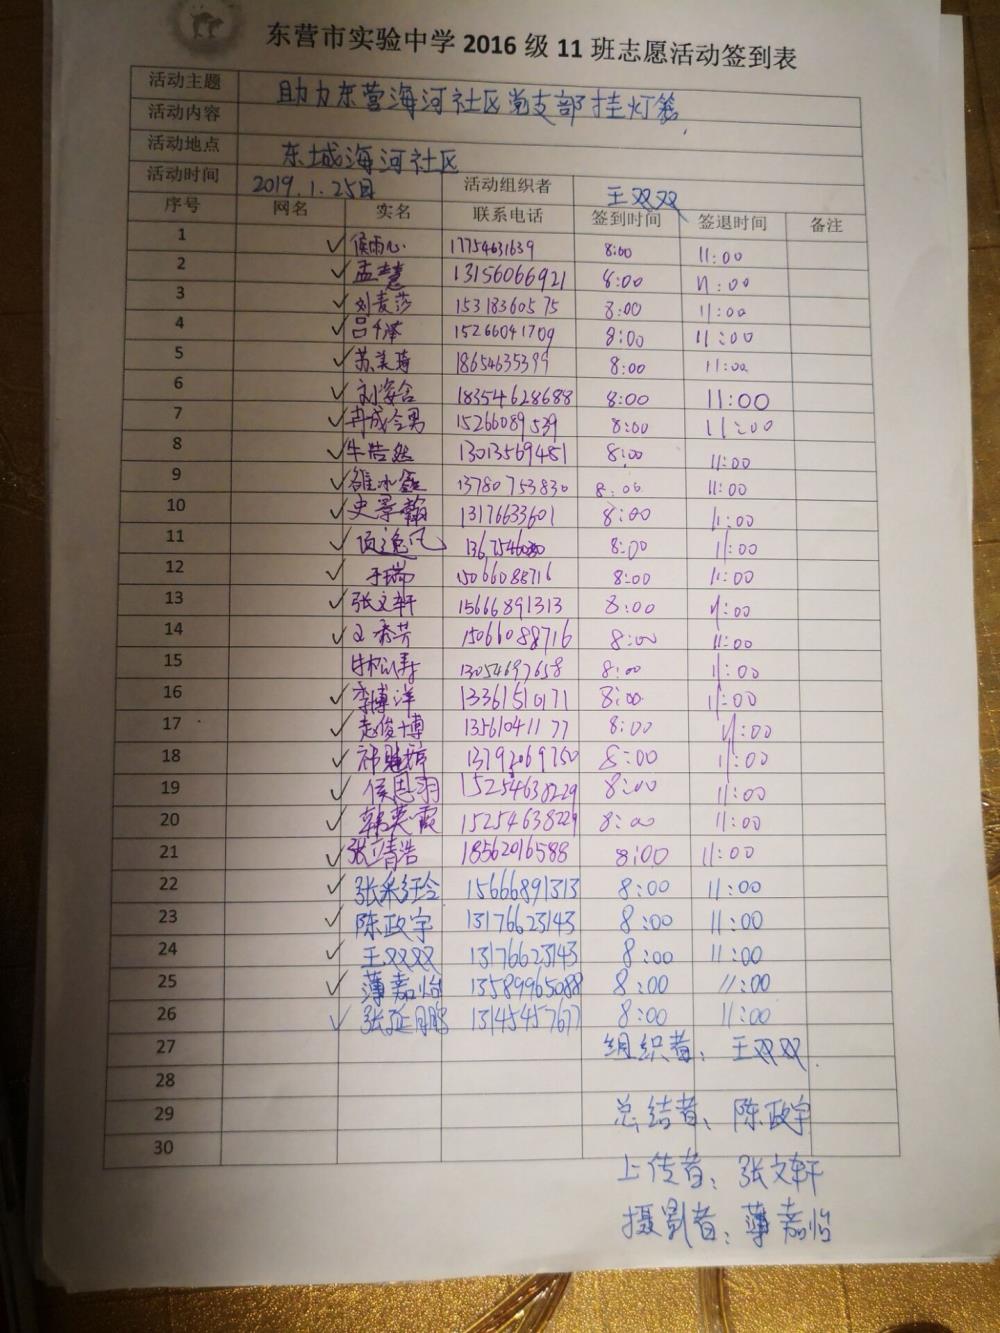 东营市实验中学 2016 级 11 班志愿活动签到表
活动主题 助力东营海河社区党支部挂灯笼
活动内容
活动地点 东城海河社区
活动时间 2019.1.25日 活动组织者 王双双
序号 网名 实名 联系电话 签到时间 签退时间 备注
1 ✓侯雨心 17754631639 8:00 11:00
2 ✓孟慧 13156066921 8:00 11:00
3 ✓刘麦莎 15318360575 8:00 11:00
4 ✓吕千泽 15266041709 8:00 11:00
5 ✓苏美琦 18654635399 8:00 11:00
6 ✓刘姿含 18354628688 8:00 11:00
7 ✓冉成令男 15266089539 8:00 11:00
8 ✓牛浩然 13013569481 8:00 11:00
9 ✓ 13780753830 8:00 11:00
10 ✓ 13176633601 8:00 11:00
11 ✓项逸凡 8:00 11:00
12 ✓于瑞 15066088716 8:00 11:00
13 ✓张文轩 15666891313 8:00 11:00
14 ✓王秀芳 15066088716 8:00 11:00
15 牛松涛 13054697658 8:00 11:00
16 ✓李博洋 13361510171 8:00 11:00
17 ✓赵俊博 13561041177 8:00 11:00
18 ✓ 13792069750 8:00 11:00
19 ✓侯思羽 15254638229 8:00 11:00
20 ✓韩英霞 15254638229 8:00 11:00
21 ✓张立清浩 18562016588 8:00 11:00
22 ✓张彩玲 15666891313 8:00 11:00
23 ✓陈政宇 13176623143 8:00 11:00
24 ✓王双双 13176623143 8:00 11:00
25 ✓薄嘉怡 13589965088 8:00 11:00
26 ✓张延鹏 13145457677 8:00 11:00
27 组织者：王双双
28
29 总结者：陈政宇
30
上传者：张文轩
摄影者：薄嘉怡